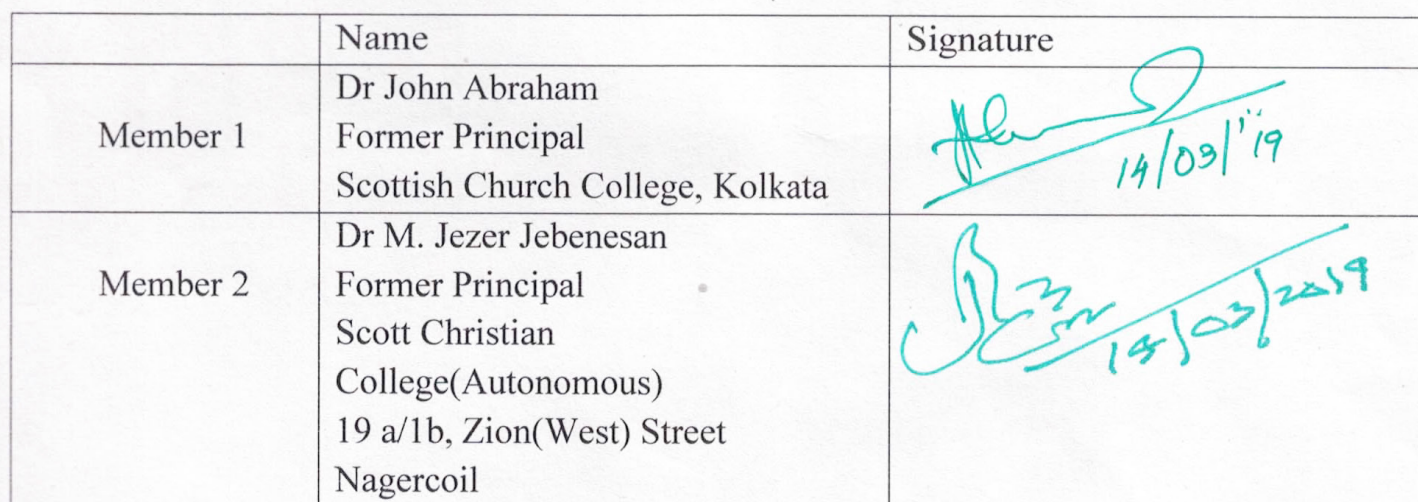 Name Signature
Dr John Abraham
Member 1 Former Principal
Scottish Church College, Kolkata
14/03/'19
Dr M. Jezer Jebenesan
Member 2 Former Principal
Scott Christian
College(Autonomous)
19 a/1b, Zion(West) Street
Nagercoil